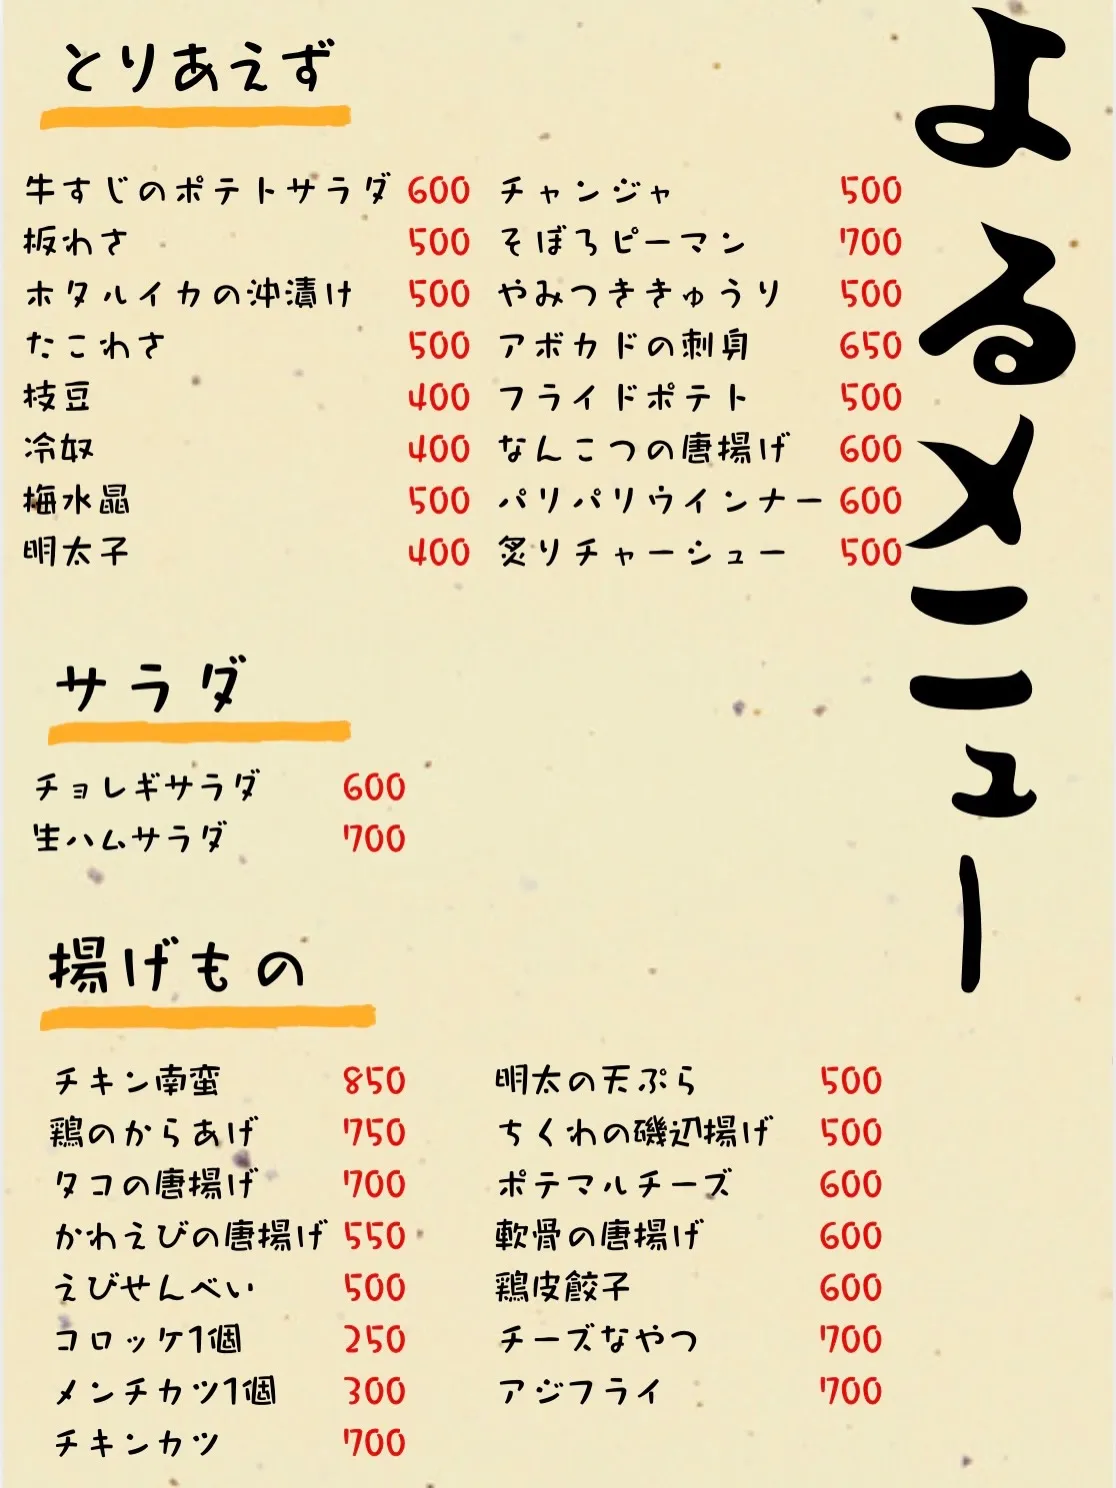 よるメニュー
とりあえず
牛すじのポテトサラダ 600
板わさ 500
ホタルイカの沖漬け 500
たこわさ 500
枝豆 400
冷奴 400
梅水晶 500
明太子 400
チャンジャ 500
そぼろピーマン 700
やみつききゅうり 500
アボカドの刺身 650
フライドポテト 500
なんこつの唐揚げ 600
パリパリウインナー 600
炙りチャーシュー 500
サラダ
チョレギサラダ 600
生ハムサラダ 700
揚げもの
チキン南蛮 850
鶏のからあげ 750
タコの唐揚げ 700
かわえびの唐揚げ 550
えびせんべい 500
コロッケ1個 250
メンチカツ1個 300
チキンカツ 700
明太の天ぷら 500
ちくわの磯辺揚げ 500
ポテマルチーズ 600
軟骨の唐揚げ 600
鶏皮餃子 600
チーズなやつ 700
アジフライ 700